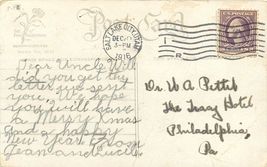 Post Card
SALT LAKE CITY, UTAH
DEC
3-PM
1916
U.S. POSTAGE
Dear Uncle Will
did you get the
letter we sent
you, we hope
you will have
a Merry Xmas
and a happy
New Year to from
Jean and
Dr. W A Pettet
The Tracy Hotel
Philadelphia,
Pa